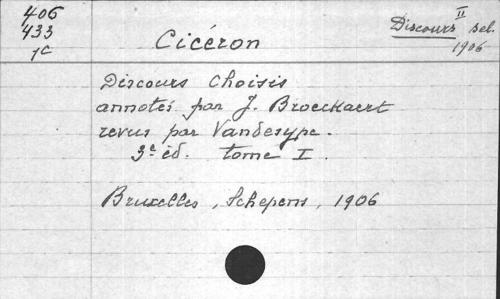 406
433
1C
Cicéron
II
Discours sel.
1906
Discours choisis
annotés par J. Broeckaert
revus par Vandesype.
3e éd. tome I.
Bruxelles, Schepens, 1906